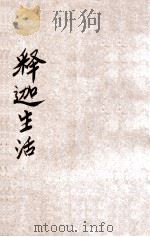 释迦生活
mtoou.info